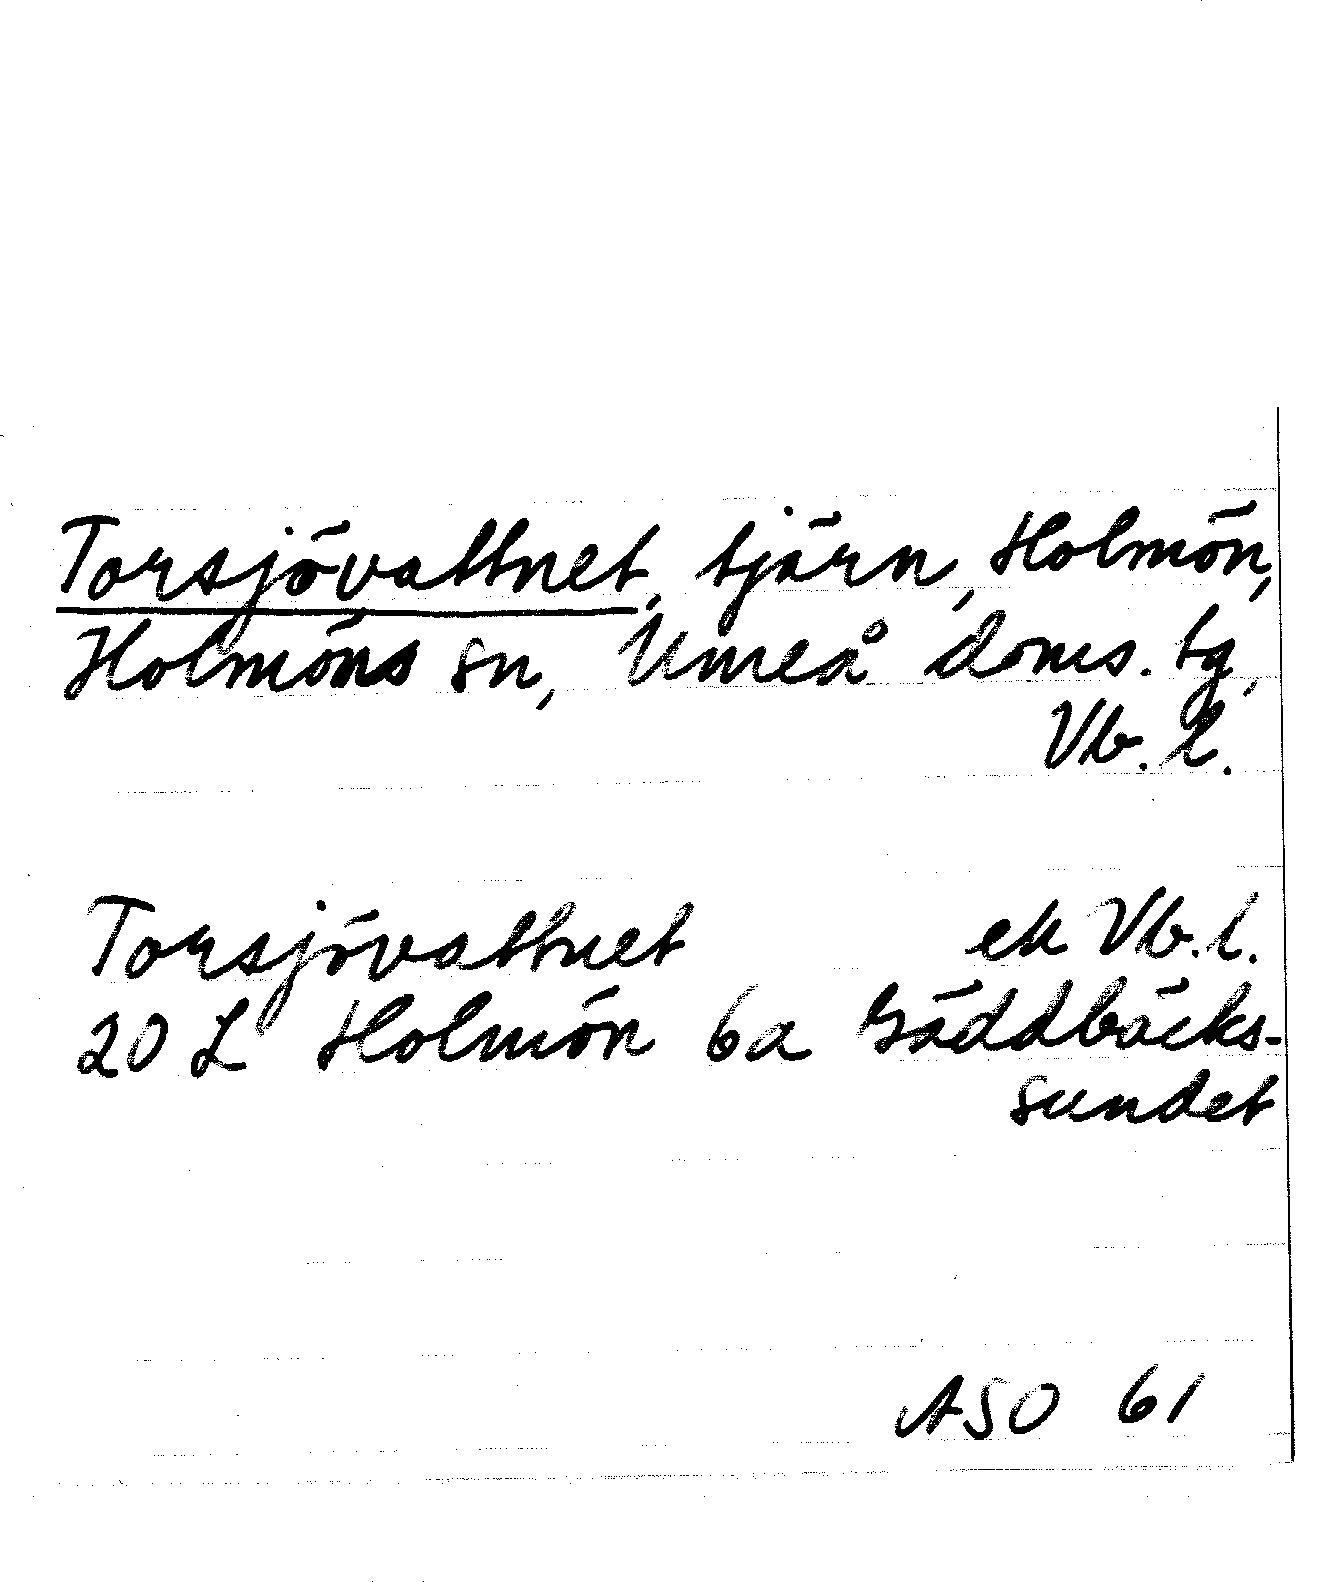 Torsjövattnet, tjärn, Holmön,
Holmöns sn, Umeå doms. tg,
Vb. l.
Torsjövattnet ek Vb. l.
20 L Holmön 6a Gäddbäcks-
sundet
ASO 61